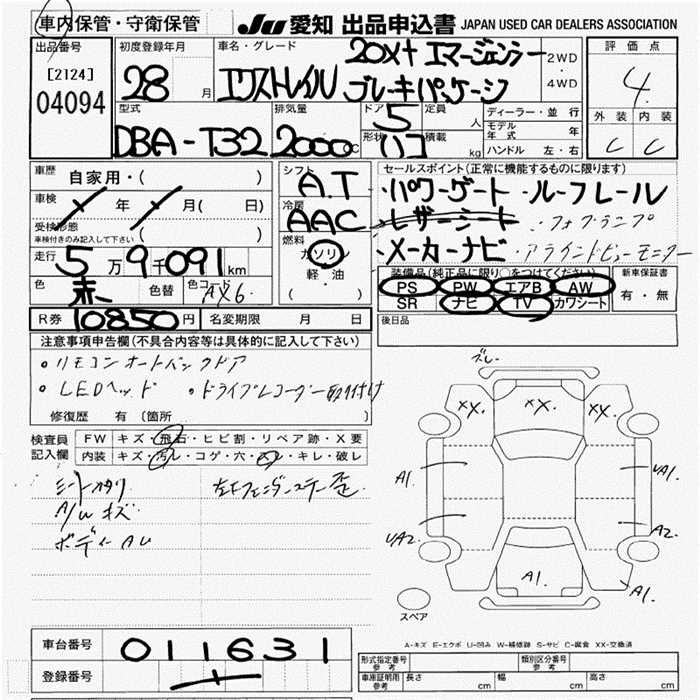 車内保管・守衛保管 JU 愛知 出品申込書 JAPAN USED CAR DEALERS ASSOCIATION
出品番号 初度登録年月 車名・グレード 20X+エマージェンシー 2WD 評価点
[2124] 28 月 エクストレイル ブレーキパッケージ ・4WD 4
04094 型式 排気量 ドア 5 定員 人 ディーラー・並行 外装 内装
DBA-T32 2000 cc 形状 ハコ 積載 kg モデル年式 年 C C
ハンドル 左・右
車歴 自家用・( ) シフト A.T セールスポイント(正常に機能するものに限ります)
車検 年 月( 日) 冷房 AAC ・パワーゲート ・ルーフレール
受検形態 ・レザーシート ・フォグランプ
車検付きのみ記入して下さい( ) 燃料 ガソリン ・メーカーナビ ・アラウンドビューモニター
走行 5万9千091km 軽・油 装備品(純正品に限り○をつけてください) 新車保証書
色 赤 色替 色コード AX6 ( ) PS PW エアB AW 有・無
SR ナビ TV カワシート
R券 10850円 名変期限 月 日 後日品
注意事項申告欄(不具合内容等は具体的に記入して下さい)
・リモコンオートバックドア
・LEDヘッド ・ドライブレコーダー取り付け
修復歴 有(箇所 )
検査員 FW キズ・飛石・ヒビ割・リペア跡・X要
記入欄 内装 キズ・汚レ・コゲ・穴・スレ・キレ・破レ
シートスリ 左右フェンダーステー歪
A/W キズ
ボディー AU
ズレ
XX. XX. XX.
A1. UA1.
UA2. A2.
A1. A1.
スペア
A-キズ E-エクボ U-凹み W-補修跡 S-サビ C-腐食 XX-交換済
車台番号 011631
登録番号
形式指定番号 参考 類別区分番号 参考
車庫証明用 参考 長さ cm 幅 cm 高さ cm